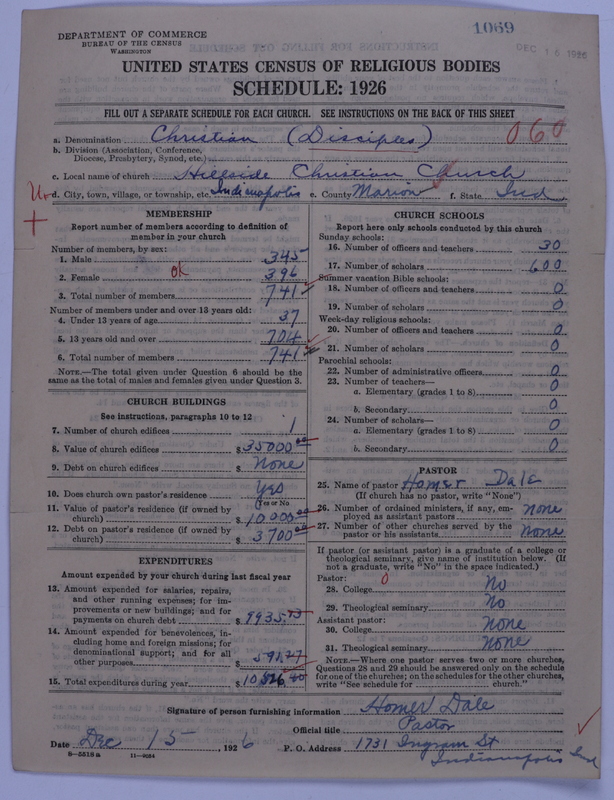 1069
DEC 16 1926
DEPARTMENT OF COMMERCE
BUREAU OF THE CENSUS
WASHINGTON
UNITED STATES CENSUS OF RELIGIOUS BODIES
SCHEDULE: 1926
FILL OUT A SEPARATE SCHEDULE FOR EACH CHURCH. SEE INSTRUCTIONS ON THE BACK OF THIS SHEET
a. Denomination Christian (Disciples) 060
b. Division (Association, Conference, Diocese, Presbytery, Synod, etc.)
c. Local name of church Hillside Christian Church
d. City, town, village, or township, etc. Indianapolis e. County Marion f. State Ind
MEMBERSHIP
Report number of members according to definition of member in your church
Number of members, by sex:
1. Male 345
2. Female OK 396
3. Total number of members 741
Number of members under and over 13 years old:
4. Under 13 years of age 37
5. 13 years old and over 704
6. Total number of members 741
NOTE.—The total given under Question 6 should be the same as the total of males and females given under Question 3.
CHURCH BUILDINGS
See instructions, paragraphs 10 to 12
7. Number of church edifices 1
8. Value of church edifices $ 35000 00
9. Debt on church edifices $ None
10. Does church own pastor's residence Yes
(Yes or No
11. Value of pastor's residence (if owned by church) $ 10000 00
12. Debt on pastor's residence (if owned by church) $ 3700 00
EXPENDITURES
Amount expended by your church during last fiscal year
13. Amount expended for salaries, repairs, and other running expenses; for improvements or new buildings; and for payments on church debt $ 9935.13
14. Amount expended for benevolences, including home and foreign missions; for denominational support; and for all other purposes $ 591.27
15. Total expenditures during year $ 10526.40
CHURCH SCHOOLS
Report here only schools conducted by this church
Sunday schools:
16. Number of officers and teachers 30
17. Number of scholars 600
Summer vacation Bible schools:
18. Number of officers and teachers 0
19. Number of scholars 0
Week-day religious schools:
20. Number of officers and teachers 0
21. Number of scholars 0
Parochial schools:
22. Number of administrative officers 0
23. Number of teachers—
a. Elementary (grades 1 to 8) 0
b. Secondary 0
24. Number of scholars—
a. Elementary (grades 1 to 8) 0
b. Secondary 0
PASTOR
25. Name of pastor Homer Dale
(If church has no pastor, write "None")
26. Number of ordained ministers, if any, employed as assistant pastors none
27. Number of other churches served by the pastor or his assistants none
If pastor (or assistant pastor) is a graduate of a college or theological seminary, give name of institution below. (If not a graduate, write "No" in the space indicated.)
Pastor: 0
28. College No
29. Theological seminary No
Assistant pastor:
30. College None
31. Theological seminary None
NOTE.—Where one pastor serves two or more churches, Questions 28 and 29 should be answered only on the schedule for one of the churches; on the schedules for the other churches, write "See schedule for church."
Signature of person furnishing information Homer Dale
Official title Pastor
Date Dec 15, 1926 P. O. Address 1731 Ingram St
Indianapolis Ind
8—5518a 11—9054